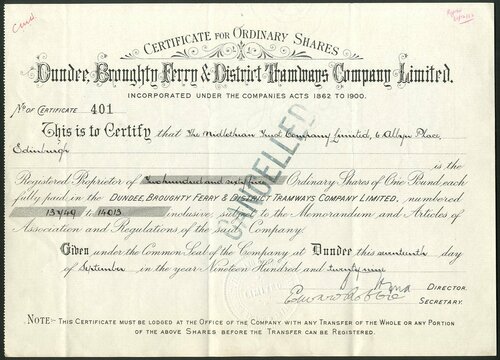 CERTIFICATE FOR ORDINARY SHARES
Dundee, Broughty Ferry & District Tramways Company Limited.
INCORPORATED UNDER THE COMPANIES ACTS 1862 TO 1900.
No OF CERTIFICATE 401
This is to Certify that The Midlothian Trust Company Limited, 6 Albyn Place,
Edinburgh
is the
Registered Proprietor of Two hundred and sixty five Ordinary Shares of One Pound each
fully paid, in the DUNDEE, BROUGHTY FERRY & DISTRICT TRAMWAYS COMPANY LIMITED, numbered
13749 to 14013 inclusive, subject to the Memorandum and Articles of
Association and Regulations of the said Company.
CANCELLED
Given under the Common Seal of the Company at Dundee this seventeenth day
of September in the year Nineteen Hundred and twenty nine
DIRECTOR.
SECRETARY.
NOTE:- THIS CERTIFICATE MUST BE LODGED AT THE OFFICE OF THE COMPANY WITH ANY TRANSFER OF THE WHOLE OR ANY PORTION
OF THE ABOVE SHARES BEFORE THE TRANSFER CAN BE REGISTERED.